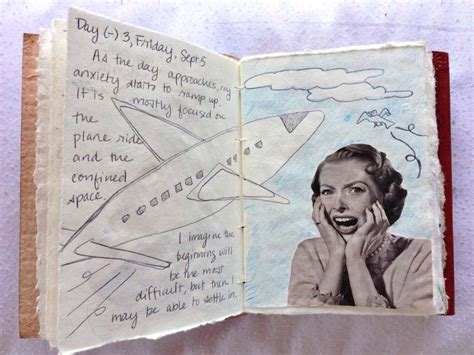 Day (-) 3, Friday, Sept 5
As the day approaches, my
anxiety starts to ramp up.
It is mostly focused on
the
plane ride
and the
confined
space.
I imagine the
beginning will
be the most
difficult, but then I
may be able to settle in.